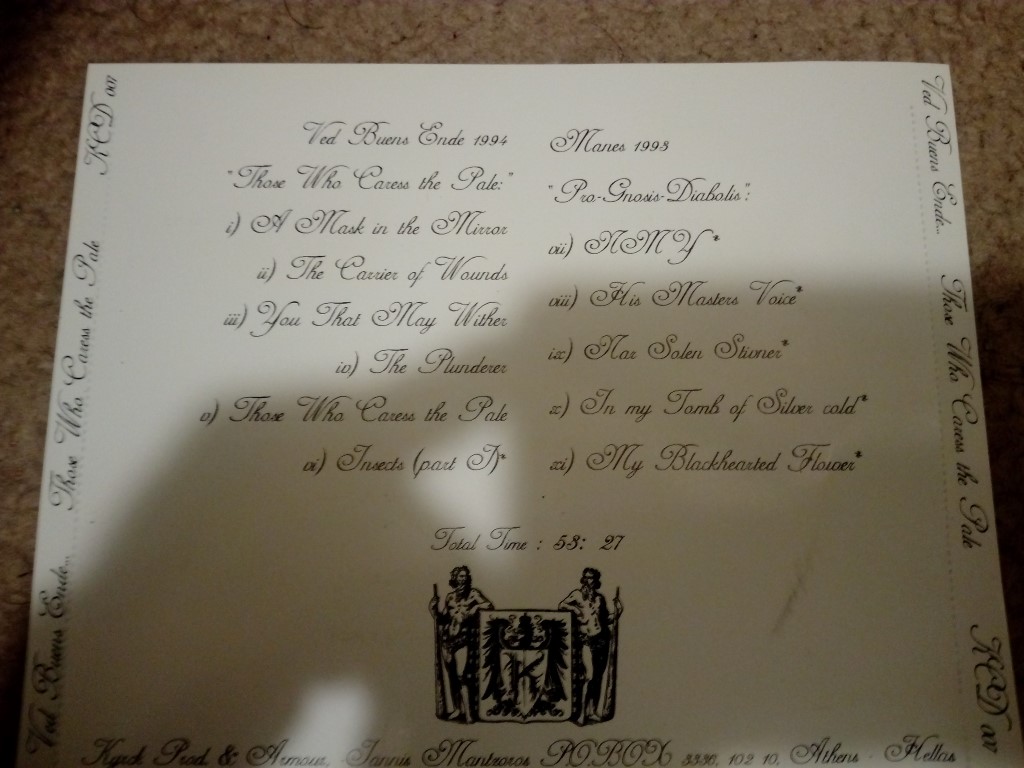 Ved Buens Ende 1994
"Those Who Caress the Pale:"
i) A Mask in the Mirror
ii) The Carrier of Wounds
iii) You That May Wither
iv) The Plunderer
v) Those Who Caress the Pale
vi) Insects (part I)*
Manes 1993
"Pro-Gnosis-Diabolis":
vii) NMY*
viii) His Masters Voice*
ix) Nar Solen Stivner*
x) In my Tomb of Silver cold*
xi) My Blackhearted Flower*
Total Time : 53: 27
K
Kyrck Prod. & Armour, Iannis Mantzoros P.O.BOX 3336, 102 10, Athens - Hellas
Ved Buens Ende... Those Who Caress the Pale KCD 007
Ved Buens Ende... Those Who Caress the Pale KCD 007